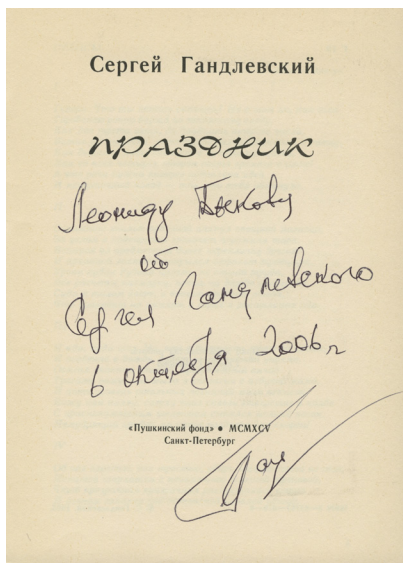 Сергей Гандлевский
ПРАЗДНИК
Леониду Быкову
от
Сергея Гандлевского
6 октября 2006 г
«Пушкинский фонд» ● MCMXCV
Санкт-Петербург